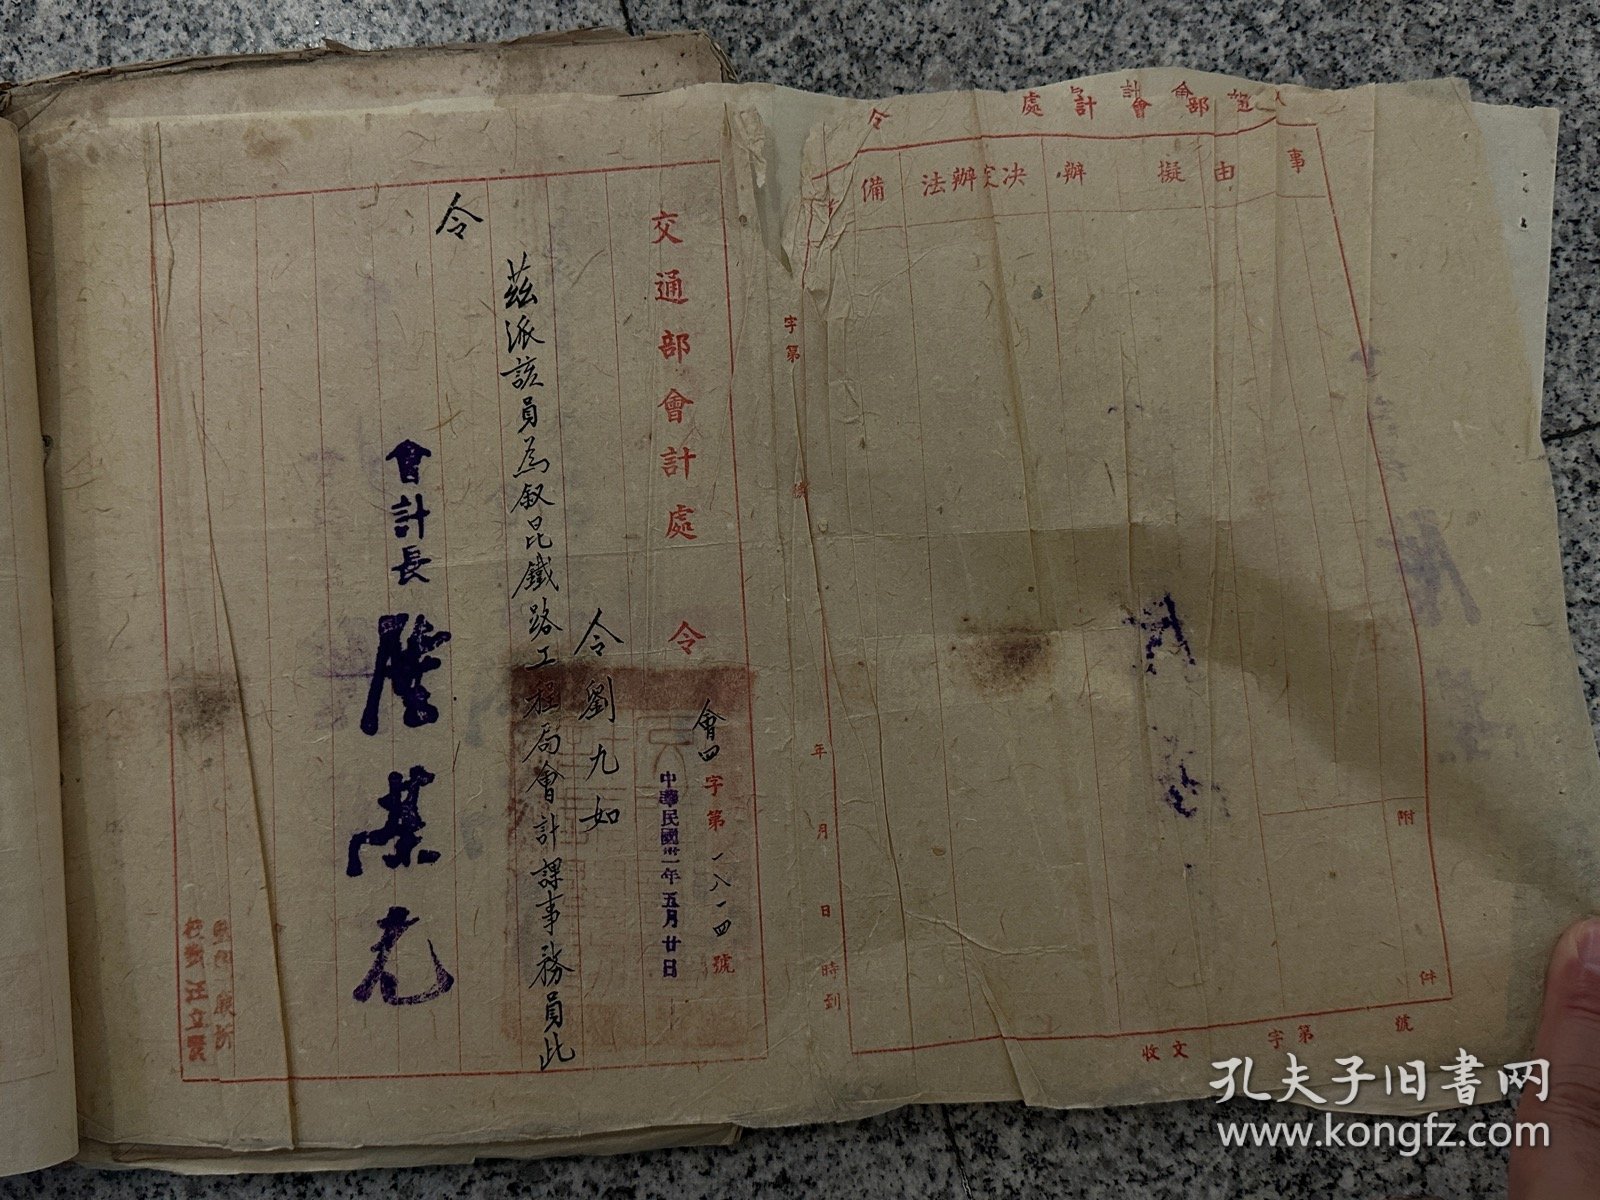 事
由
擬
辦
決定辦法
備
附
件
收文
字第
號
年
月
日
時到
字第
號
交通部會計處
令
會四字第一八一四號
中華民國卅一年五月廿日
令劉九如
茲派該員為叙昆鐵路工程局會計課事務員此
令
會計長
校對汪立賢
孔夫子旧書网
www.kongfz.com